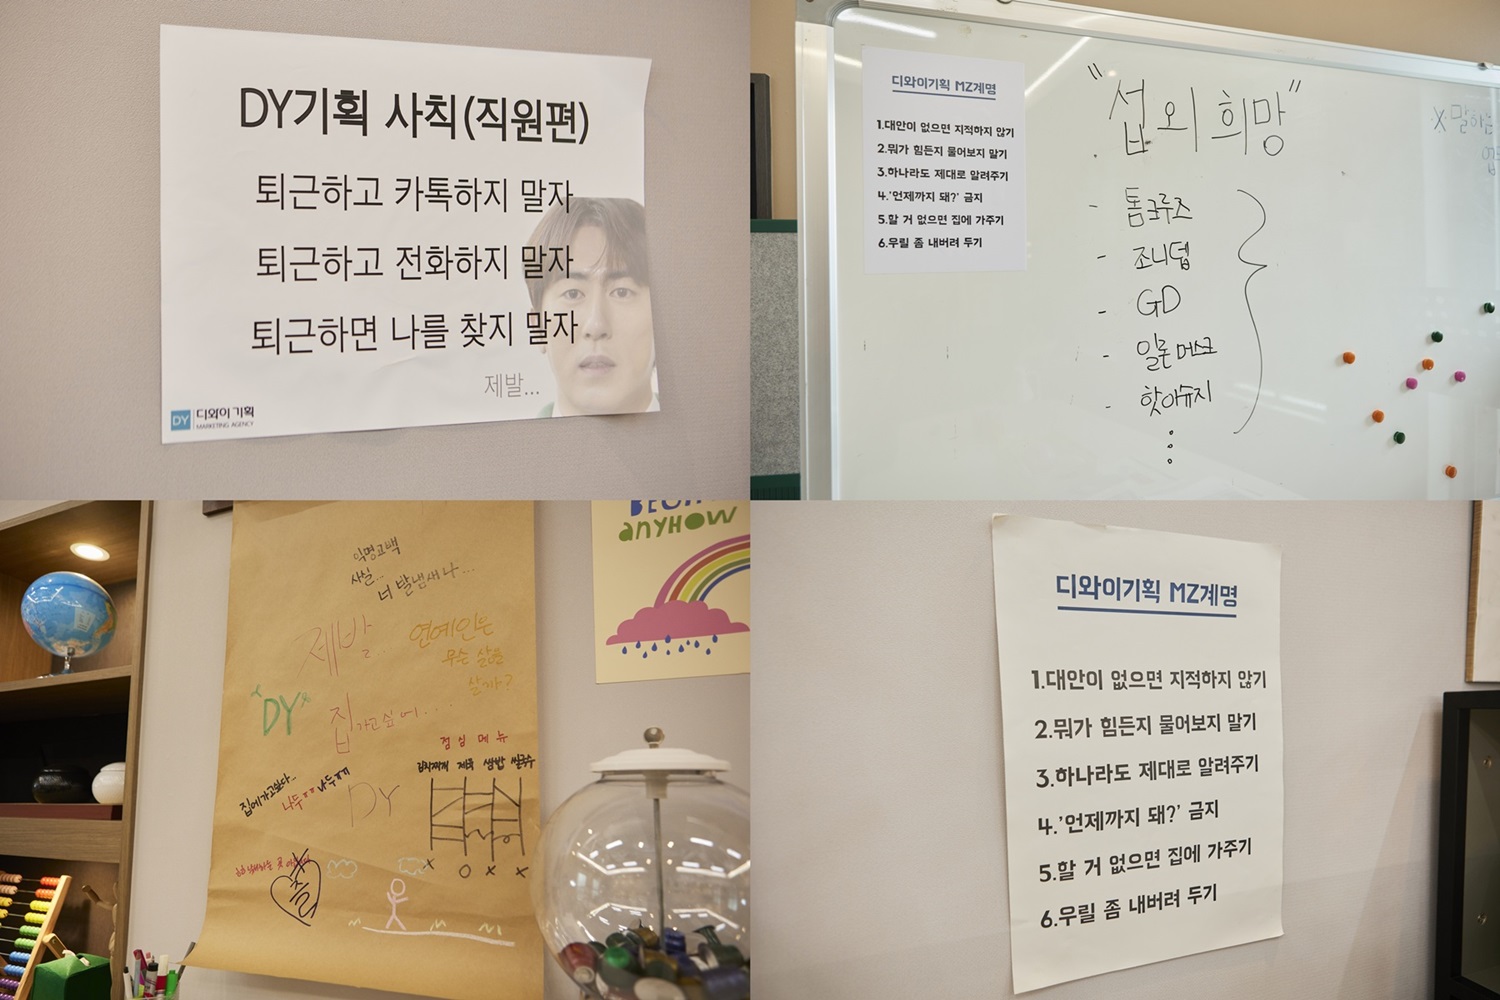 DY기획 사칙(직원편)
퇴근하고 카톡하지 말자
퇴근하고 전화하지 말자
퇴근하면 나를 찾지 말자
제발...
DY 디와이기획
MARKETING AGENCY
디와이기획 MZ계명
1.대안이 없으면 지적하지 않기
2.뭐가 힘든지 물어보지 말기
3.하나라도 제대로 알려주기
4.'언제까지 돼?' 금지
5.할 거 없으면 집에 가주기
6.우릴 좀 내버려 두기
"섭외 희망"
- 톰크루즈
- 조니뎁
- GD
- 일론머스크
- 핫이슈지
X 말하는
익명고백
사실...
너 발냄새나...
제발...
연예인은
무슨 삶을
살까?
DY
집가고싶어...
점심메뉴
김치찌개 제육 쌈밥 쌀국수
집에가고싶다...
나두ㅠㅠ 나두ㅋㅋ
DY
X O X X
ANYHOW
디와이기획 MZ계명
1.대안이 없으면 지적하지 않기
2.뭐가 힘든지 물어보지 말기
3.하나라도 제대로 알려주기
4.'언제까지 돼?' 금지
5.할 거 없으면 집에 가주기
6.우릴 좀 내버려 두기